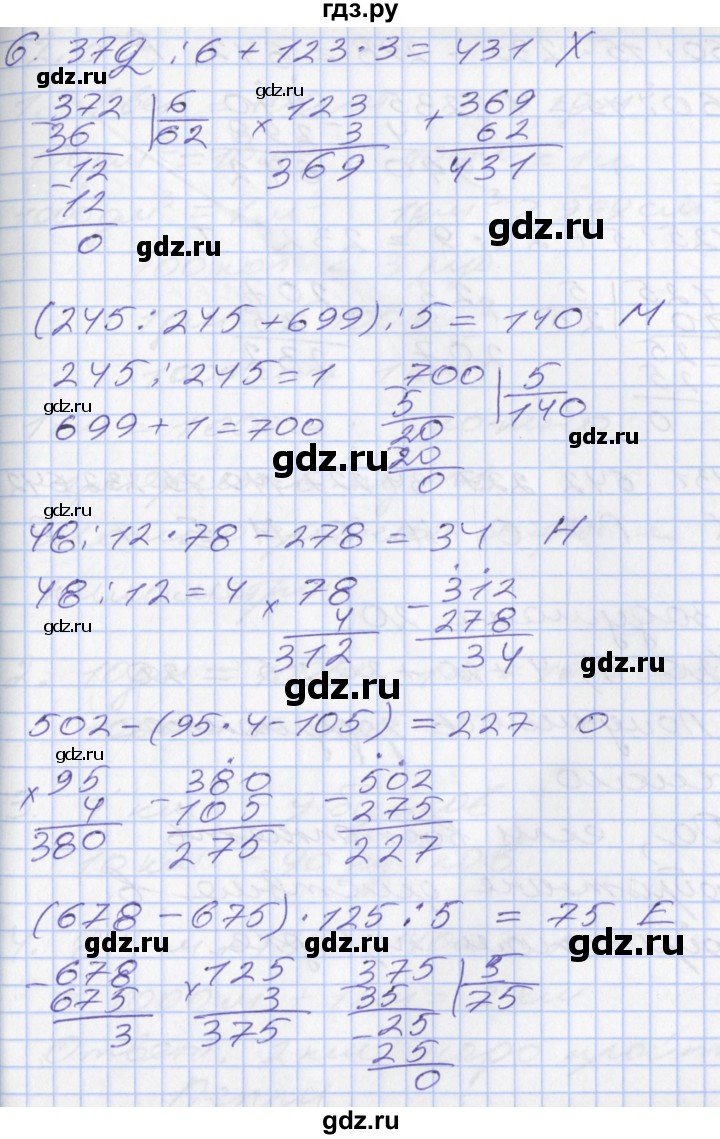 гдз.ру
6. 372 : 6 + 123 · 3 = 431 Х
gdz.ru
gdz.ru
372 6 123 369
36 62 × 3 + 62
- 12 369 431
12
0
gdz.ru
gdz.ru
(245 : 245 + 699) : 5 = 140 М
245 : 245 = 1 700 5
gdz.ru
5 140
699 + 1 = 700 20
gdz.ru
gdz.ru
20
0
gdz.ru
48 : 12 · 78 - 278 = 34 Н
48 : 12 = 4 × 78 - 312
gdz.ru
4 278
312 34
gdz.ru
gdz.ru
502 - (95 · 4 - 105) = 227 О
gdz.ru
× 95 - 380 - 502
4 105 275
380 275 227
(678 - 675) · 125 : 5 = 75 Е
gdz.ru
gdz.ru
- 678 × 125 375 5
675 3 35 75
3 375 - 25
25
0
gdz.ru
gdz.ru
gdz.ru